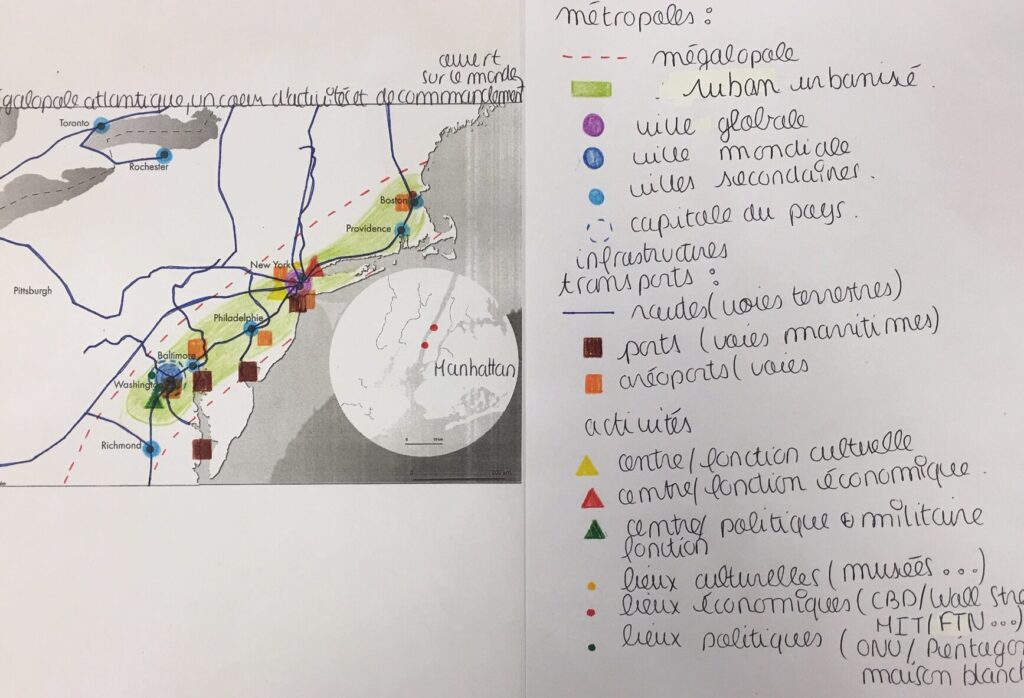 ouvert
sur le monde
égalopole atlantique, un coeur d'activités et de commandement
Toronto
Rochester
Boston
Providence
New York
Pittsburgh
Philadelphie
Manhattan
Baltimore
Washington
Richmond
métropoles :
mégalopole
ruban urbanisé.
ville globale
ville mondiale
villes secondaires.
capitale du pays.
infrastructures
transports :
routes (voies terrestres)
ports (voies marritimes)
aréoports (voies
activités
centre/fonction culturelle
centre/fonction économique.
centre/politique et militaire
fonction
lieux culturelles (musées ...)
lieux économiques (CBD/Wall Stre
MIT/FTN...)
lieux politiques (ONU/Pentagon
maison blanch